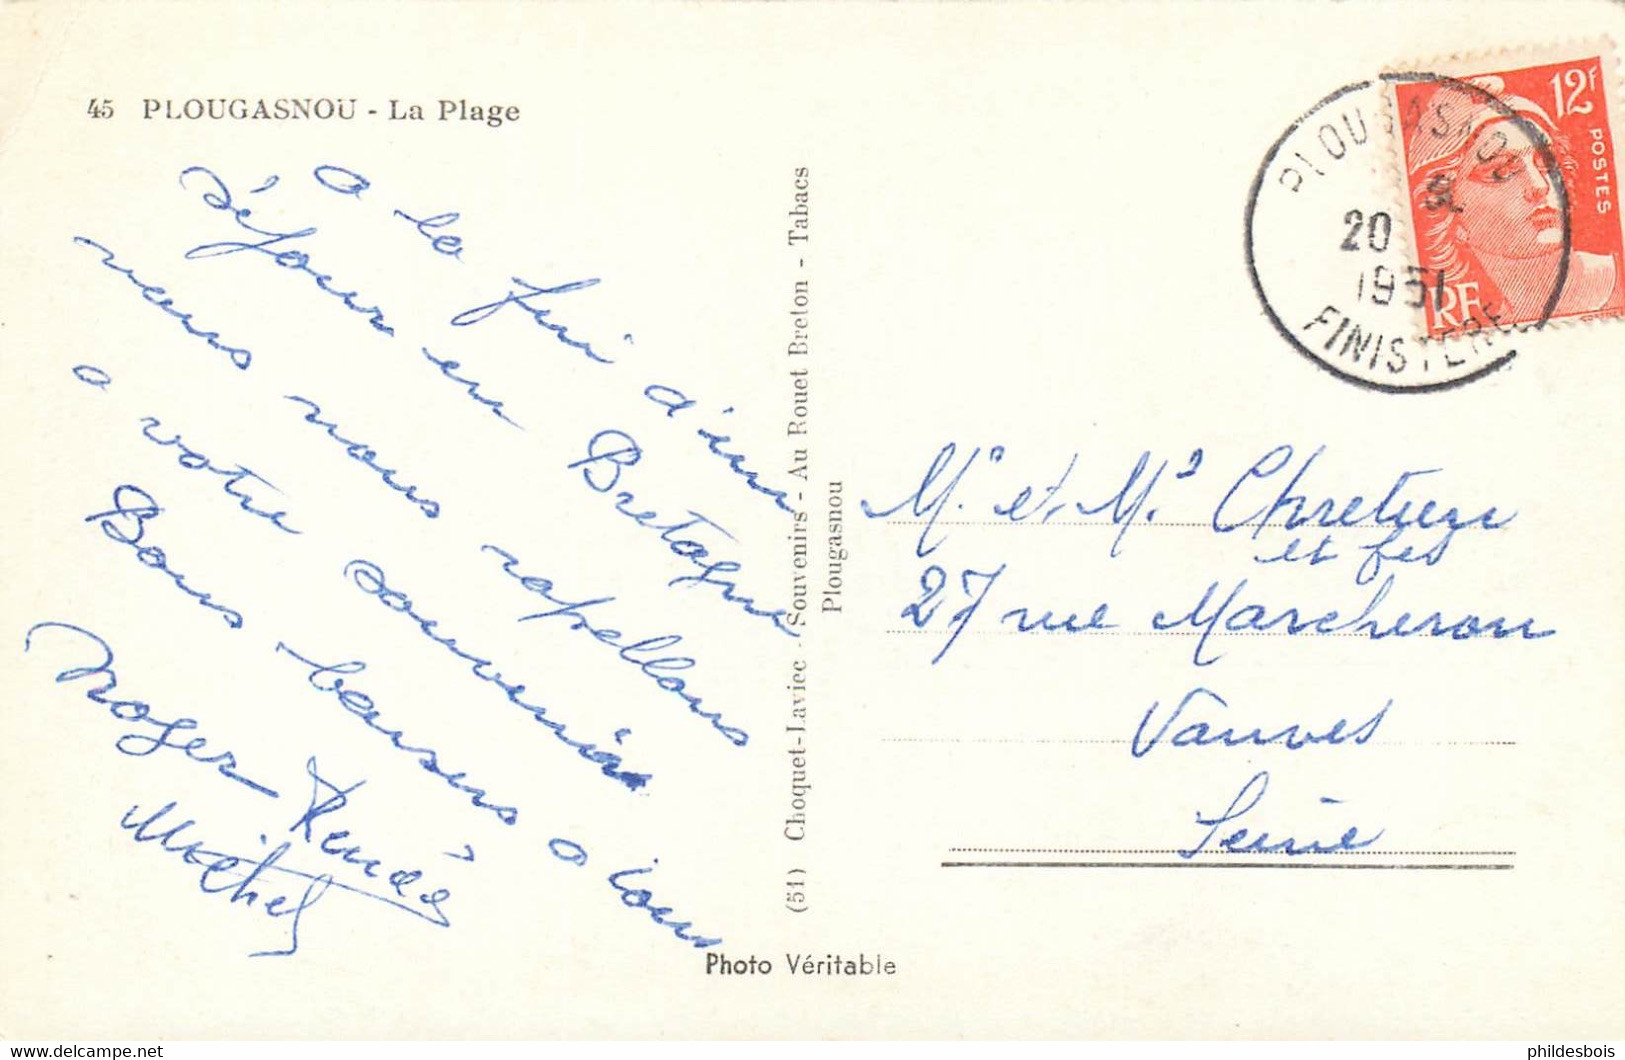 45 PLOUGASNOU - La Plage
a la fin d'un
séjour en Bretagne
nous nous rapellons
a votre souvenir
Bons baisers a tous
Roger Renée
Michel
(51) Choquet-Laviec - Souvenirs - Au Rouet Breton - Tabacs
Plougasnou
Photo Véritable
PLOUGASNOU
20
1951
FINISTERE
12F
POSTES
RF
Mr et Me Chretien
et fils
27 rue Marcheron
Vanves
Seine
phildesbois